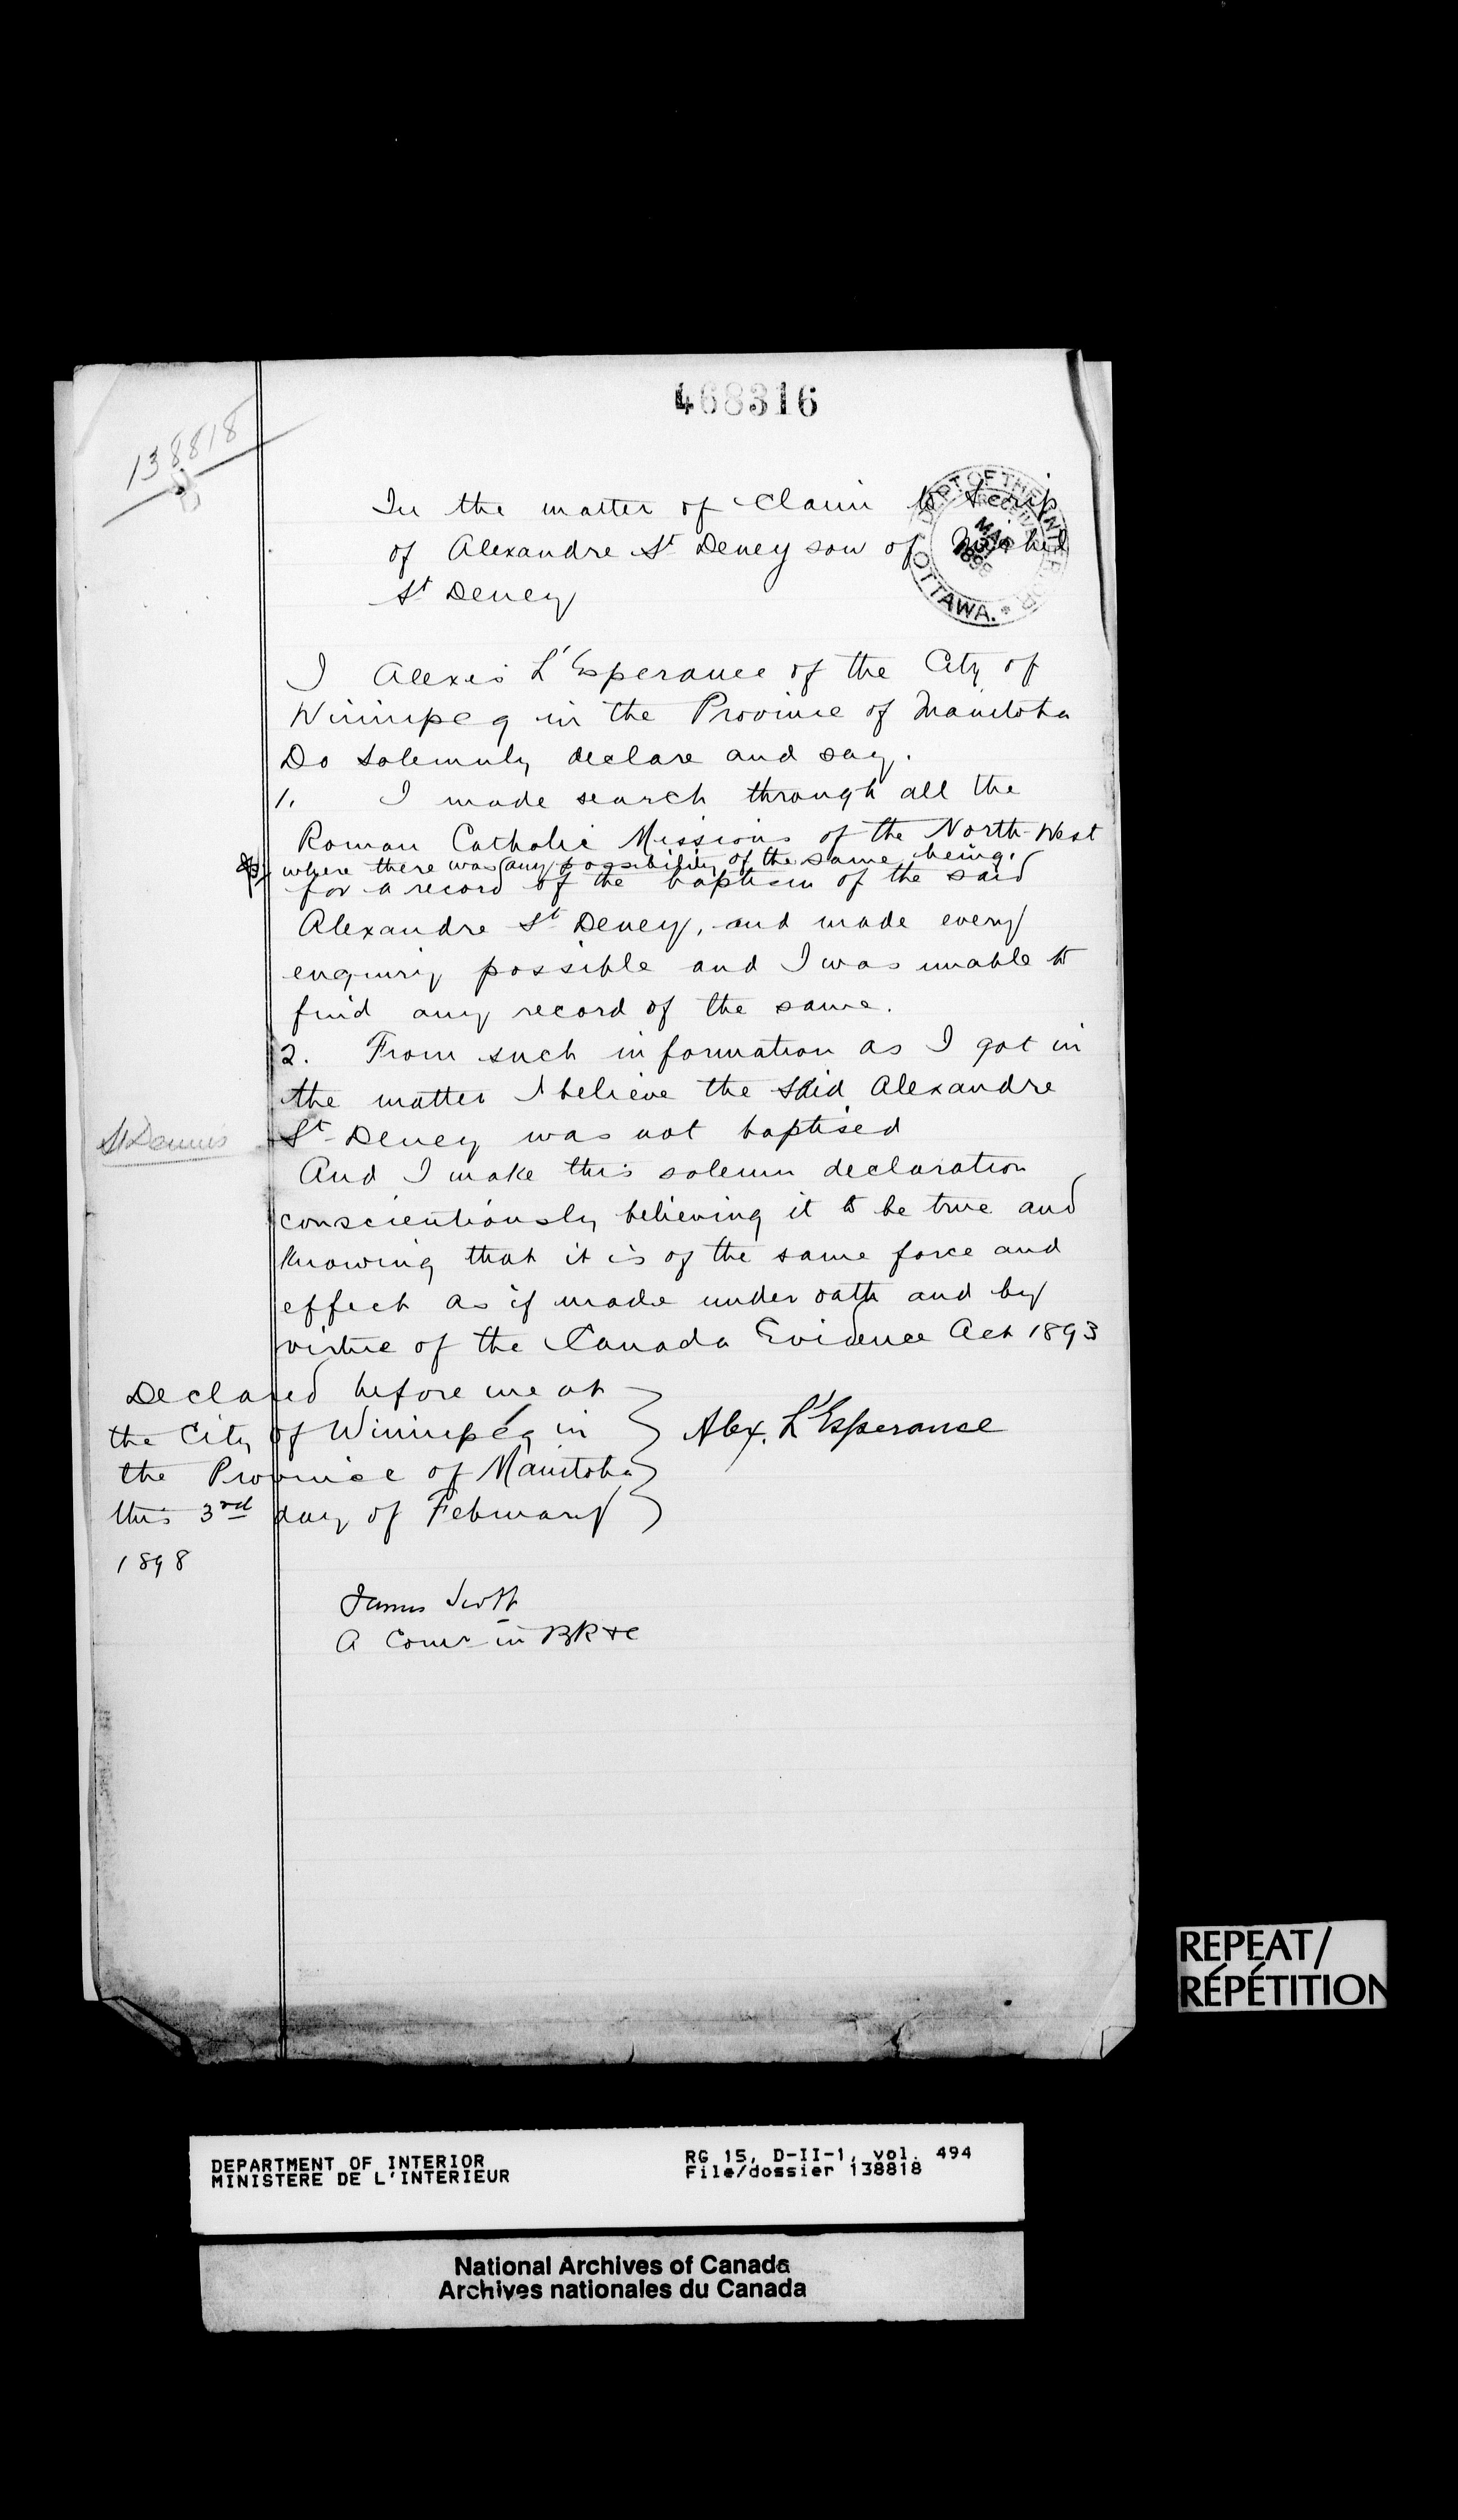 468316
138818
In the matter of Claim to Scrip
of Alexandre St Deney son of Michel
St Deney
DEPT OF THE INTERIOR
RECEIVED
MAR
1898
OTTAWA.
I Alexis L'Esperance of the City of
Winnipeg in the Province of Manitoba
Do solemnly declare and say.
1. I made search through all the
Roman Catholic Missions of the North-West
where there was any possibility of the same being.
for a record of the baptism of the said
Alexandre St Deney, and made every
enquiry possible and I was unable to
find any record of the same.
2. From such information as I got in
the matter I believe the said Alexandre
St Dennis
St Deney was not baptised
And I make this solemn declaration
conscientiously believing it to be true and
knowing that it is of the same force and
effect as if made under oath and by
virtue of the Canada Evidence Act 1893
Declared before me at
the City of Winnipeg in
the Province of Manitoba
this 3rd day of February
1898
Alex. L'Esperance
James Scott
A Comr in BR &c
REPEAT/
RÉPÉTITION
DEPARTMENT OF INTERIOR
MINISTERE DE L'INTERIEUR
RG 15, D-II-1, vol. 494
File/dossier 138818
National Archives of Canada
Archives nationales du Canada